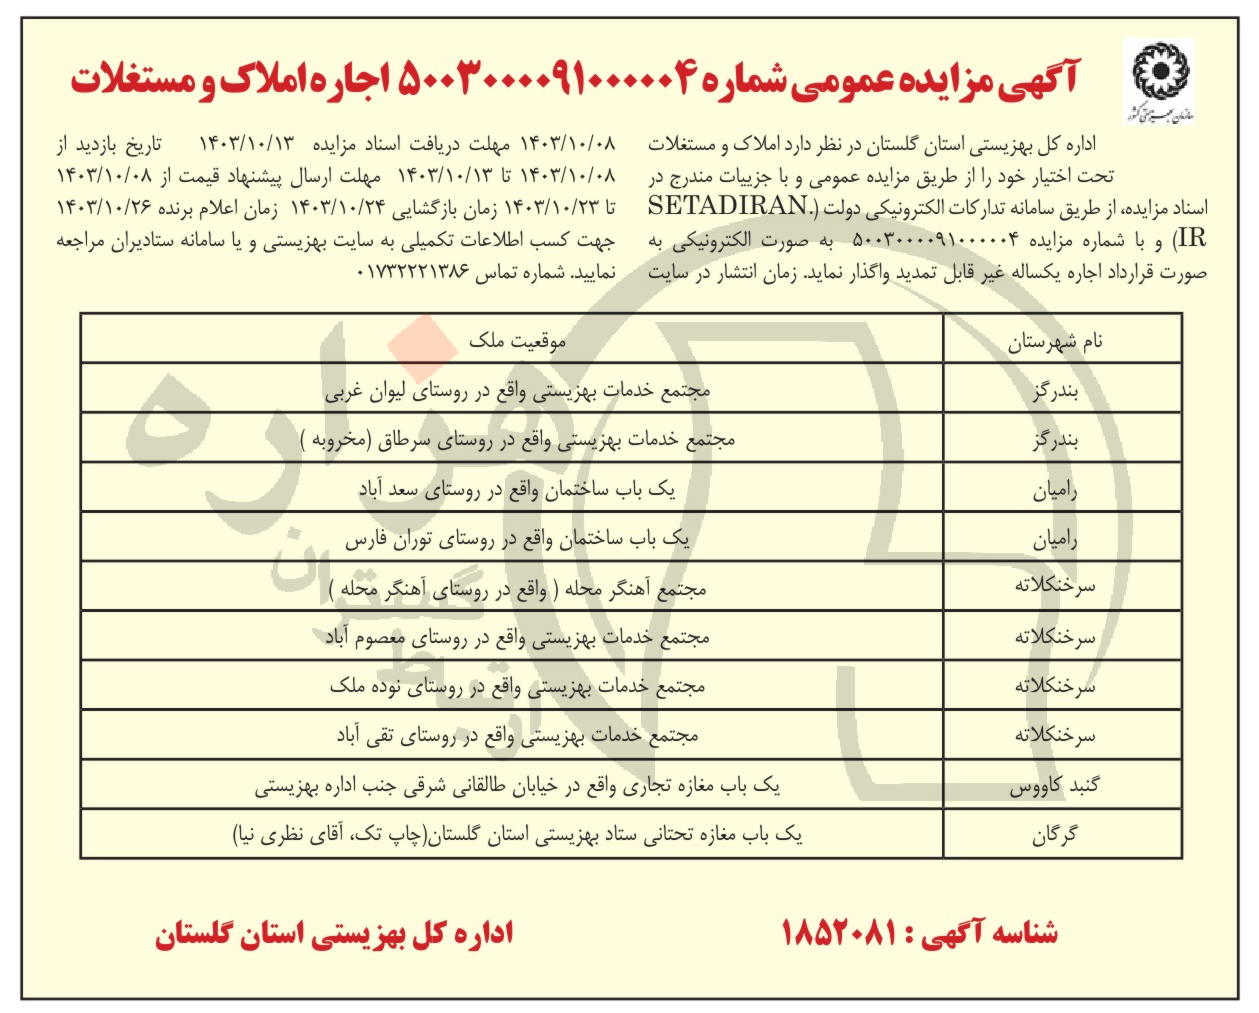 آگهی مزایده عمومی شماره ۵۰۰۳۰۰۰۰۹۱۰۰۰۰۰۴ اجاره املاک و مستغلات
سازمان بهزیستی کشور
اداره کل بهزیستی استان گلستان در نظر دارد املاک و مستغلات
تحت اختیار خود را از طریق مزایده عمومی و با جزییات مندرج در
اسناد مزایده، از طریق سامانه تدارکات الکترونیکی دولت (SETADIRAN.
IR) و با شماره مزایده ۵۰۰۳۰۰۰۰۹۱۰۰۰۰۰۴ به صورت الکترونیکی به
صورت قرارداد اجاره یکساله غیر قابل تمدید واگذار نماید. زمان انتشار در سایت
۱۴۰۳/۱۰/۰۸ مهلت دریافت اسناد مزایده ۱۴۰۳/۱۰/۱۳ تاریخ بازدید از
۱۴۰۳/۱۰/۰۸ تا ۱۴۰۳/۱۰/۱۳ مهلت ارسال پیشنهاد قیمت از ۱۴۰۳/۱۰/۰۸
تا ۱۴۰۳/۱۰/۲۳ زمان بازگشایی ۱۴۰۳/۱۰/۲۴ زمان اعلام برنده ۱۴۰۳/۱۰/۲۶
جهت کسب اطلاعات تکمیلی به سایت بهزیستی و یا سامانه ستادیران مراجعه
نمایید. شماره تماس ۰۱۷۳۲۲۲۱۳۸۶
نام شهرستان موقعیت ملک
بندرگز مجتمع خدمات بهزیستی واقع در روستای لیوان غربی
بندرگز مجتمع خدمات بهزیستی واقع در روستای سرطاق (مخروبه )
رامیان یک باب ساختمان واقع در روستای سعد آباد
رامیان یک باب ساختمان واقع در روستای توران فارس
سرخنکلاته مجتمع آهنگر محله ( واقع در روستای آهنگر محله )
سرخنکلاته مجتمع خدمات بهزیستی واقع در روستای معصوم آباد
سرخنکلاته مجتمع خدمات بهزیستی واقع در روستای نوده ملک
سرخنکلاته مجتمع خدمات بهزیستی واقع در روستای تقی آباد
گنبد کاووس یک باب مغازه تجاری واقع در خیابان طالقانی شرقی جنب اداره بهزیستی
گرگان یک باب مغازه تحتانی ستاد بهزیستی استان گلستان(چاپ تک، آقای نظری نیا)
هزاره
گستران
ارتباط
شناسه آگهی : ۱۸۵۲۰۸۱
اداره کل بهزیستی استان گلستان